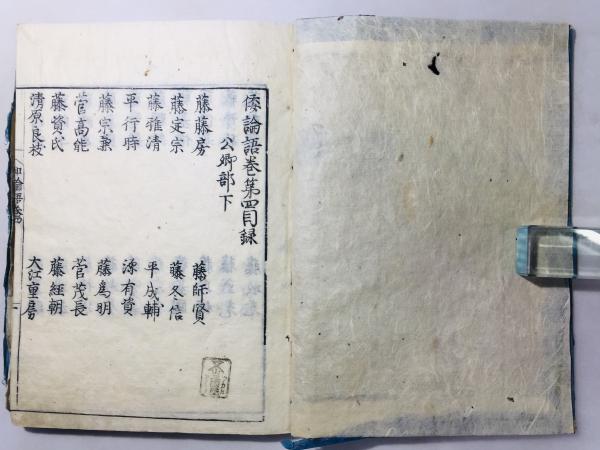 倭論語巻第四目録
公卿部下
藤藤房
藤師賢
藤定宗
藤冬信
藤雅清
平成輔
平行時
源有資
藤宗兼
藤為明
菅高能
菅茂長
藤資氏
藤経朝
清原良枝
大江重房